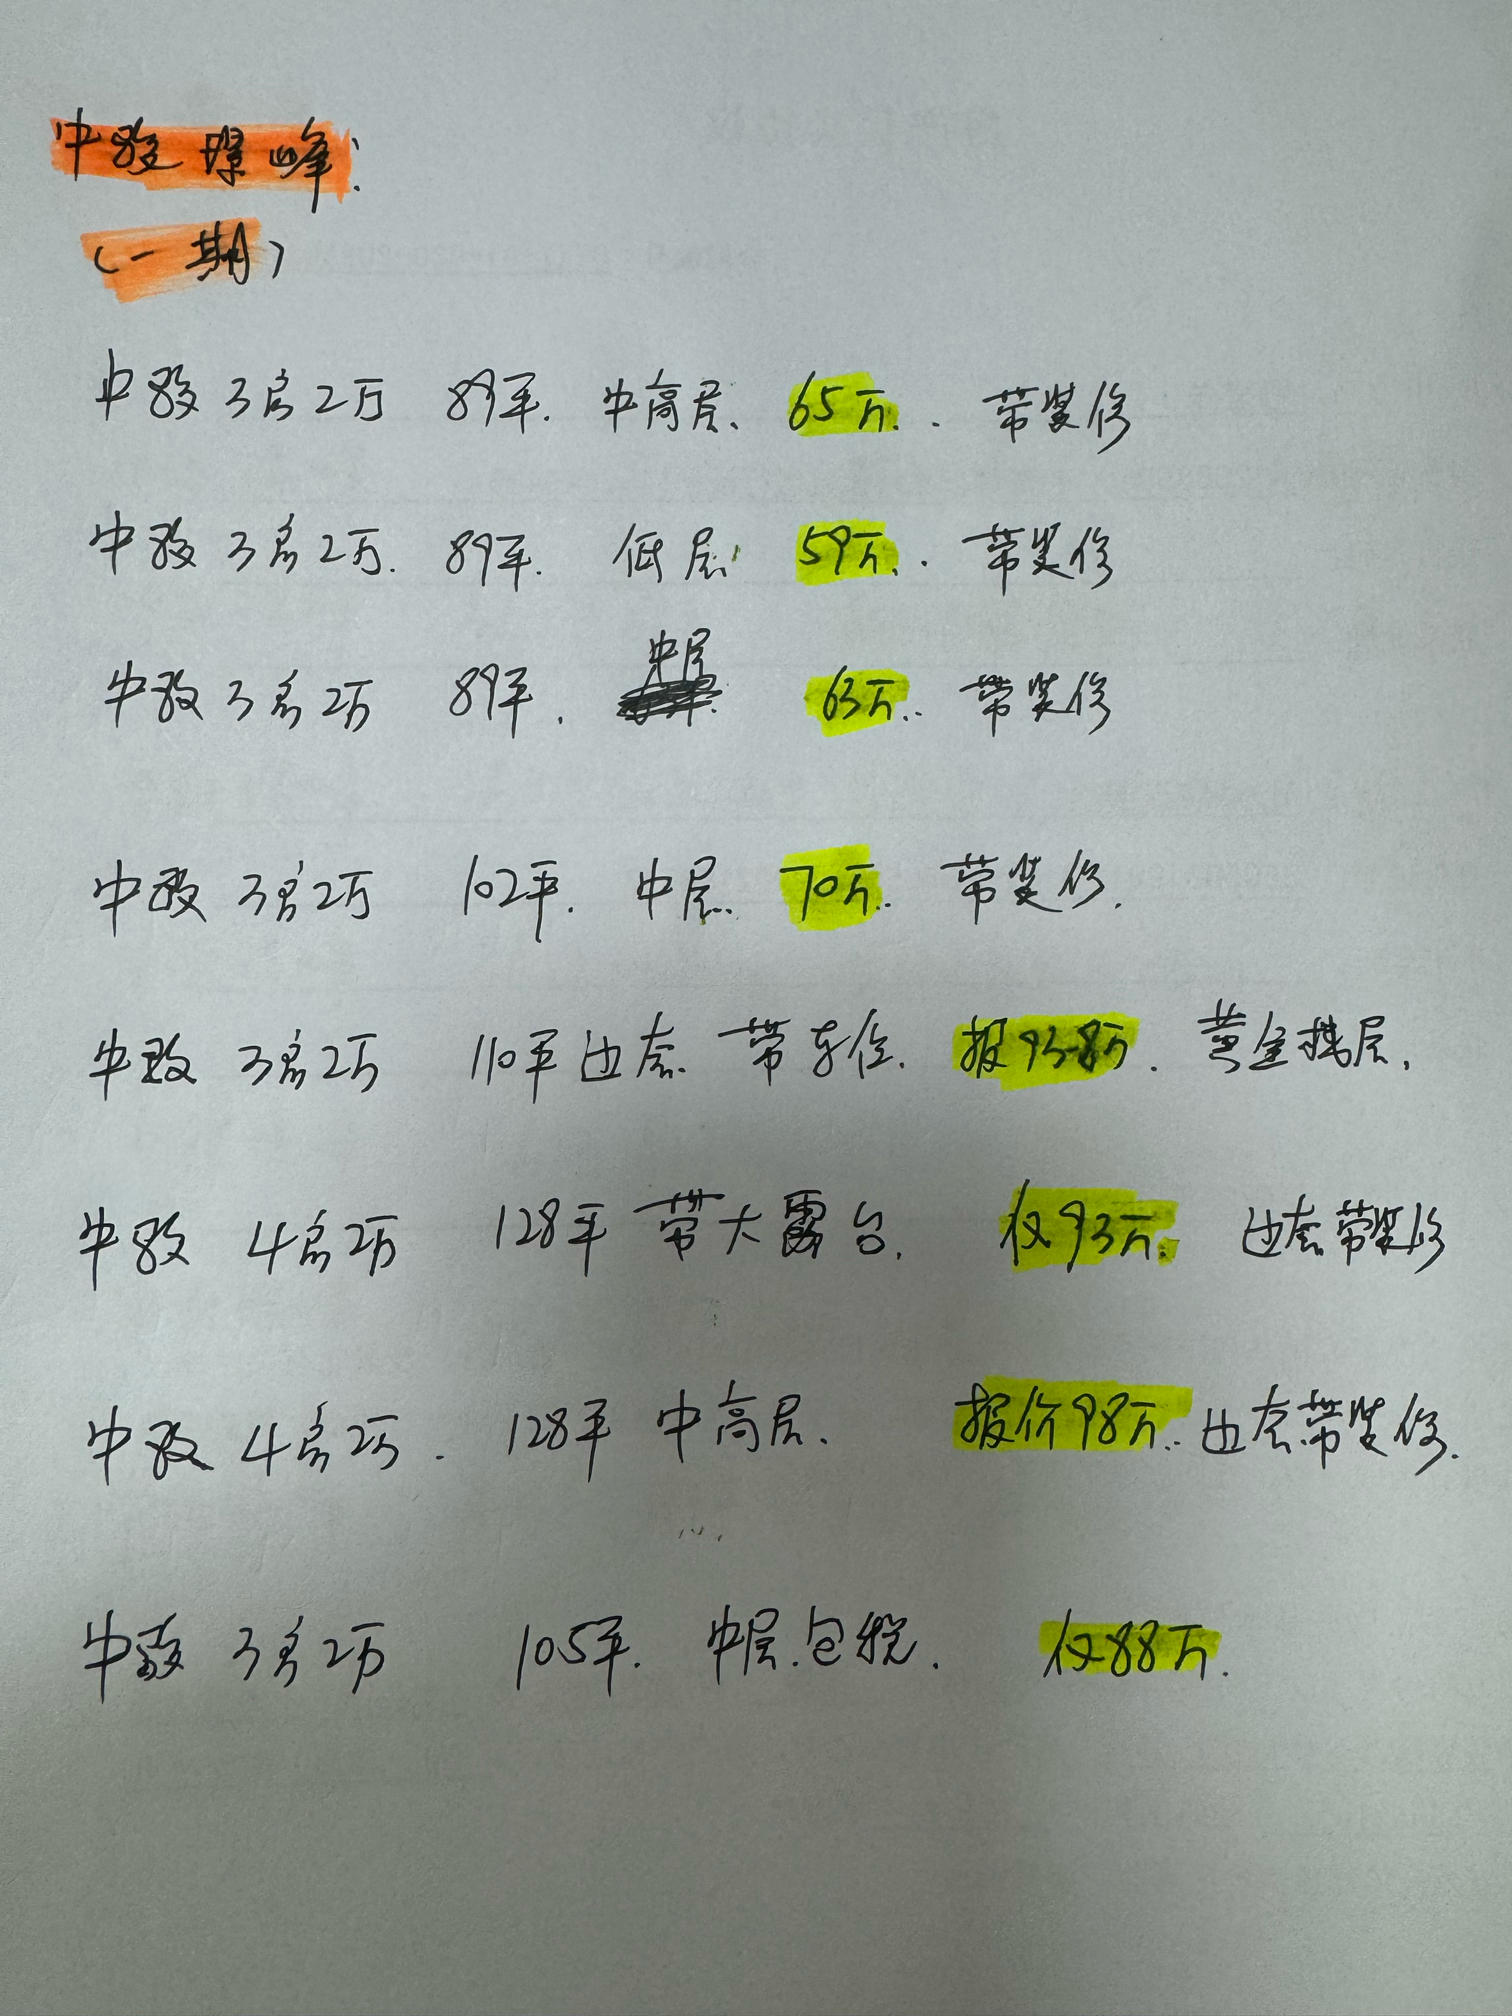 中骏璟峰:
(一期)
中骏 3房2卫 89平. 中高层、 65万. 带装修
中骏 3房2卫. 89平. 低层 59万. 带装修
中骏 3房2卫 89平. 中层 63万. 带装修
中骏 3房2卫 102平. 中层. 70万. 带装修.
中骏 3房2卫 110平 边套. 带车位. 报93.8万. 黄金楼层.
中骏 4房2卫 128平 带大露台. 仅93万. 边套带装修
中骏 4房2卫. 128平 中高层. 报价98万. 边套.带装修.
中骏 3房2卫 105平. 中层.包税. 仅88万.